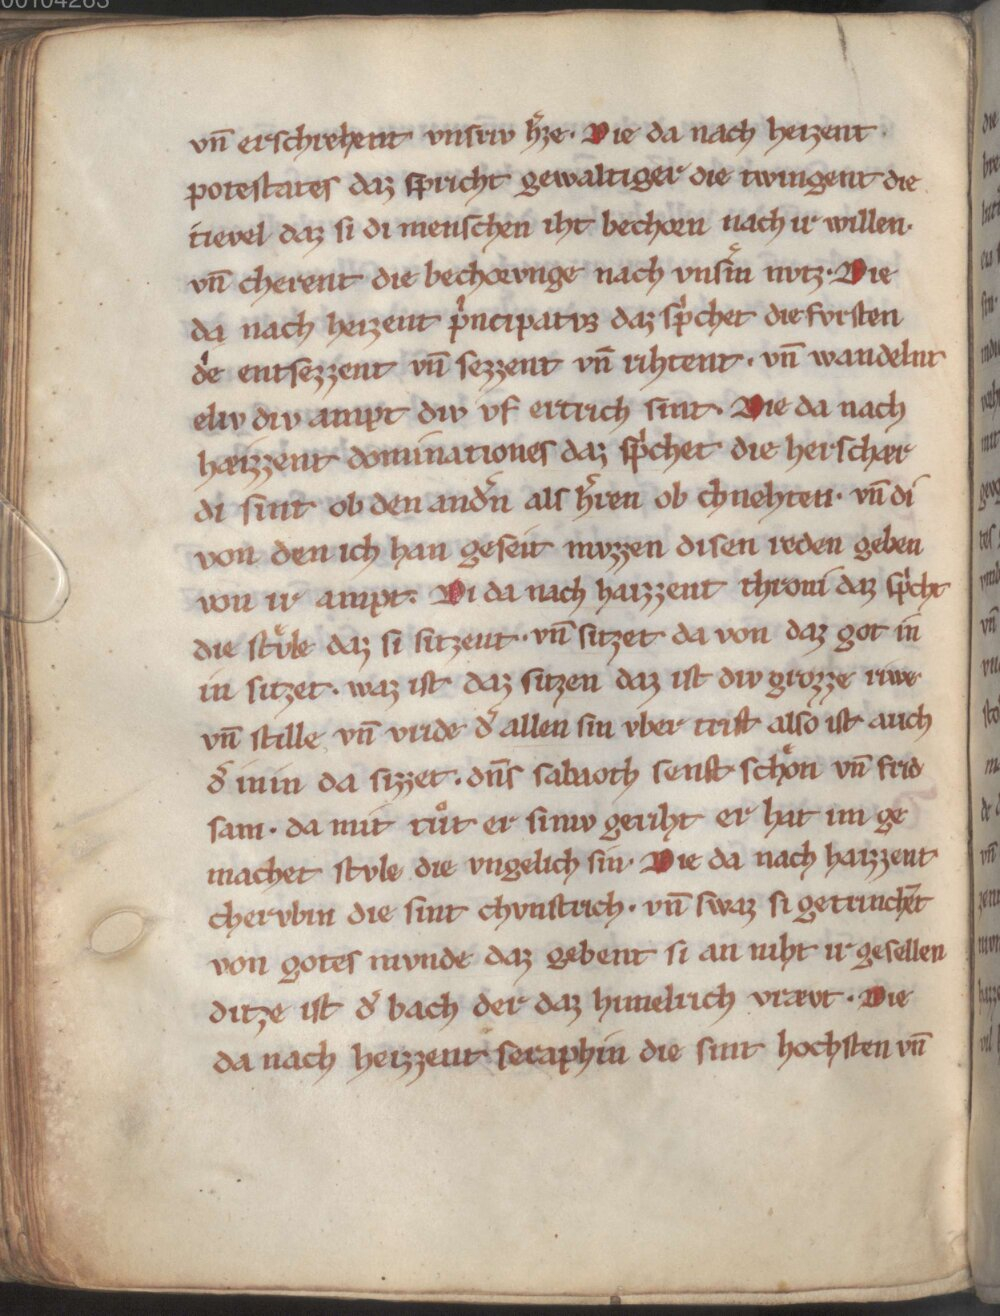 00104265
vn̄ erschrekent vnsriv h͛ze. Die da nach heizent
potestates daz spricht gewaltiger die twingent die
tievel daz si di menschen iht bechorn nach ir willen.
vn̄ cherent die bechorvnge nach vnſm̄ nvtz. Die
da nach heizent pͥncipatvs daz spͥchet die fvrsten
d͛e entsezzent vn̄ sezzent vn̄ rihtent. vn̄ wandelnt
eliv div ampt div vf ertrich sint. Die da nach
haizzent dominationes daz spͥchet die herschær
di sint ob den and͛n als h͛ren ob chnehten. vn̄ di
von den ich han geseit mvzzen disen reden geben
von ir ampt. Di da nach haizzent throni daz spͥcht
die stv̊le daz si sitzent. vn̄ sitzet da von daz got in
in sitzet. waz ist daz sitzen daz ist div grozze riwe
vn̄ stille vn̄ vride d͛ allen sin vber trift also ist auch
d͛ in in da sizzet. dn̄s sabaoth senft schon vn̄ frid
sam. da mit tůt er siniv geriht er hat im ge
machet stvle die vngelich sin. Die da nach haizzent
chervbin die sint chvnstrich. vn̄ swaz si getrinchēt
von gotes mvnde daz gebent si an niht ir gesellen
ditze ist d͛ bach der daz himelrich vrævt. Die
da nach heizzent seraphin die sint hochsten vn̄